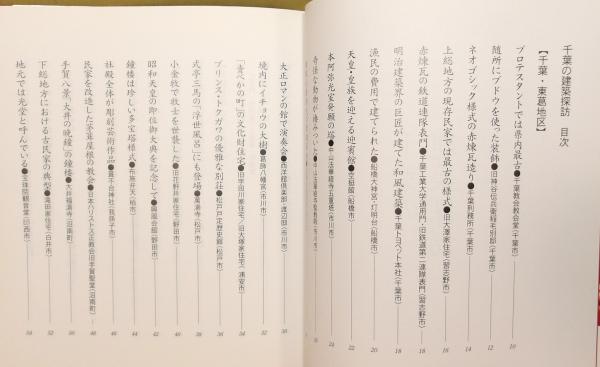 千葉の建築探訪　目次
【千葉・東葛地区】
プロテスタントでは県内最古●千葉教会教会堂（千葉市） 10
随所にブドウを使った装飾●旧神谷伝兵衛稲毛別邸（千葉市） 12
ネオゴシック様式の赤煉瓦造り●千葉刑務所（千葉市） 14
上総地方の現存民家では最古の様式●旧大沢家住宅（習志野市） 16
赤煉瓦の鉄道連隊表門●千葉工業大学通用門・旧鉄道第二連隊表門（習志野市） 18
明治建築界の巨匠が建てた和風建築●千葉トヨペット本社（千葉市） 18
漁民の費用で建てられた●船橋大神宮・灯明台（船橋市） 20
天皇・皇族を迎える迎賓館●（船橋市） 22
本阿弥光室発願の塔●中山法華経寺五重塔（市川市） 24
奇怪な動物が棲みついた●
大正ロマンの館で演奏会●西洋館倶楽部 渡辺邸（市川市） 30
境内にイチョウの大樹●葛飾八幡宮（市川市） 32
『青べかの町』の文化財住宅●旧宇田川家住宅／旧大塚家住宅（浦安市） 34
プリンス・トクガワの優雅な別荘●松戸戸定歴史館（松戸市） 36
式亭三馬の「浮世風呂」にも登場●萬満寺（松戸市） 38
小金牧で牧士を世襲した●旧花野井家住宅（野田市） 40
昭和天皇の即位御大典を記念して●興風会館（野田市） 42
鐘楼は珍しい多宝塔様式●布施弁天（柏市） 44
社殿全体が彫刻芸術作品●（我孫子市） 46
民家を改造した茅葺屋根の教会●旧日本ハリストス正教会旧手賀聖堂（沼南町） 48
手賀八景「大井の晩鐘」の鐘楼●大井福満寺（沼南町） 50
下総地方における古民家の典型●滝田家住宅（白井市） 52
地元では光堂と呼んでいる●宝珠院観音堂（印西市） 54